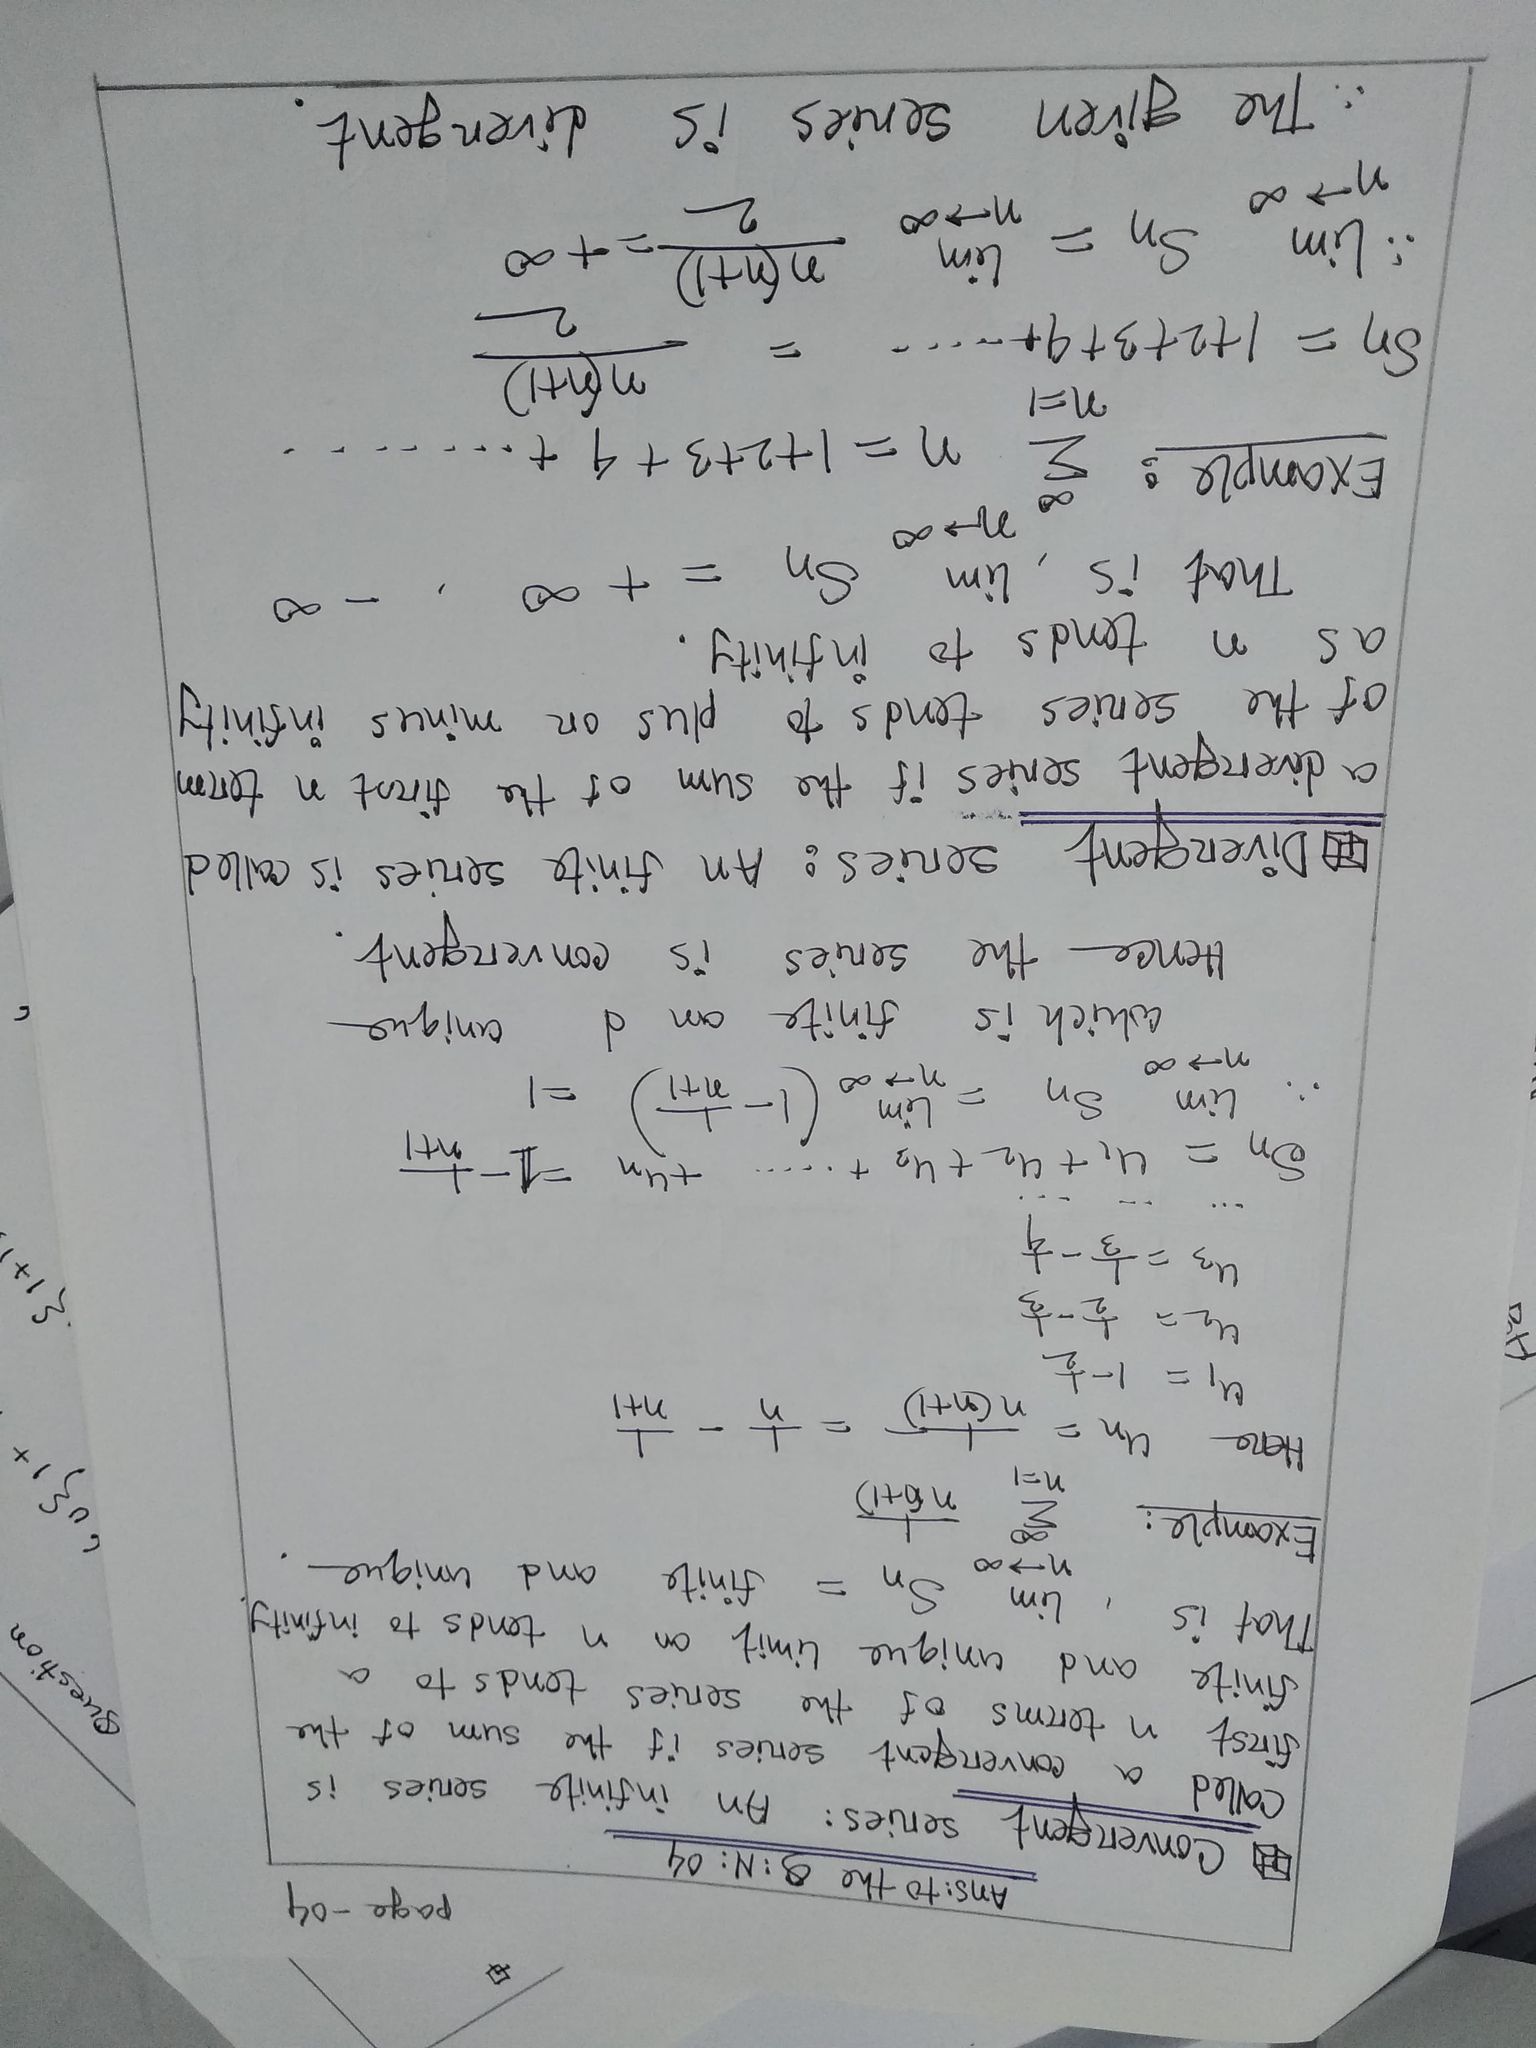 page - 04
Ans: to the Q: N: 04
Convergent series: An infinite series is
called a convergent series if the sum of the
first n terms of the series tends to a
finite and unique limit an n tends to infinity.
That is, lim n→∞ Sn = finite and unique.
Example: ∞ Σ n=1 1/n(n+1)
Here un = 1/n(n+1) = 1/n - 1/n+1
u1 = 1 - 1/2
u2 = 1/2 - 1/3
u3 = 1/3 - 1/4
... ... ...
Sn = u1 + u2 + u3 + ...... + un = 1 - 1/n+1
∴ lim n→∞ Sn = lim n→∞ (1 - 1/n+1) = 1
which is finite an d unique
Hence the series is convergent.
Divergent series: An finite series is called
a divergent series if the sum of the first n term
of the series tends to plus or minus infinity
as n tends to infinity.
That is, lim n→∞ Sn = + ∞ , - ∞
Example: ∞ Σ n=1 n = 1+2+3+4+........
Sn = 1+2+3+4+...... = n(n+1)/2
∴ lim n→∞ Sn = lim n→∞ n(n+1)/2 = + ∞
∴ The given series is divergent.
Question